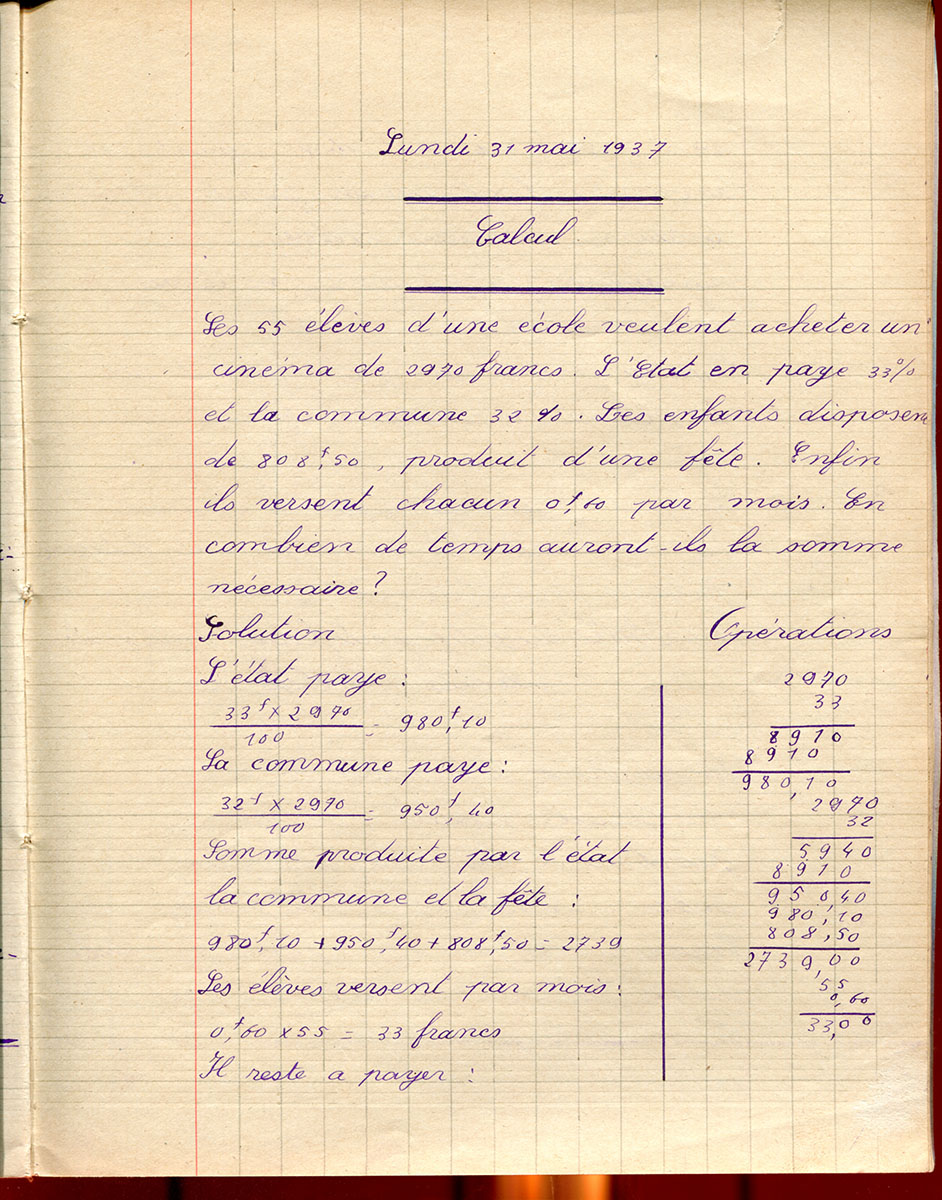 Lundi 31 mai 1937
Calcul
Les 55 élèves d'une école veulent acheter un
cinéma de 2970 francs. L'Etat en paye 33%
et la commune 32%. Les enfants disposen
de 808f,50, produit d'une fête. Enfin
ils versent chacun 0f,60 par mois. En
combien de temps auront-ils la somme
nécessaire?
Solution
Opérations
L'état paye :
33f x 2970 / 100 = 980f,10
La commune paye :
32f x 2970 / 100 = 950f,40
Somme produite par l'état
la commune et la fête :
980f,10 + 950f,40 + 808f,50 = 2739
Les élèves versent par mois :
0f,60 x 55 = 33 francs
Il reste a payer :
2970
33
8910
8910
980,10
2970
32
5940
8910
950,40
980,10
808,50
2739,00
55
0,60
33,00